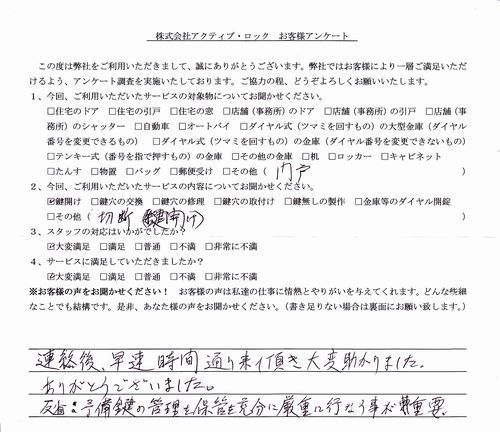 株式会社アクティブ・ロック　お客様アンケート
この度は弊社をご利用いただきまして、誠にありがとうございます。弊社ではお客様により一層ご満足いただ
けるよう、アンケート調査を実施いたしております。ご協力の程、どうぞよろしくお願いいたします。
1、今回、ご利用いただいたサービスの対象物についてお聞かせください。
□住宅のドア　□住宅の引戸　□住宅の窓　□店舗（事務所）のドア　□店舗（事務所）の引戸　□店舗（事
務所）のシャッター　□自動車　□オートバイ　□ダイヤル式（ツマミを回すもの）の大型金庫（ダイヤル
番号を変更できるもの）　□ダイヤル式（ツマミを回すもの）の金庫（ダイヤル番号を変更できないもの）
□テンキー式（番号を指で押すもの）の金庫　□その他の金庫　□机　□ロッカー　□キャビネット
□たんす　□物置　□バッグ　□郵便受け　□その他（　門戸　）
2、今回、ご利用いただいたサービスの内容についてお聞かせください。
☑鍵開け　□鍵穴の交換　□鍵穴の修理　□鍵穴の取付け　□鍵無しの製作　□金庫等のダイヤル開錠
□その他（　切断（鍵開け）　）
3、スタッフの対応はいかがでしたか？
☑大変満足　□満足　□普通　□不満　□非常に不満
4、サービスに満足していただきましたか？
☑大変満足　□満足　□普通　□不満　□非常に不満
※お客様の声をお聞かせください！　お客様の声は私達の仕事に情熱とやりがいを与えてくれます。どんな些細
なことでも結構です。是非、あなた様の声をお聞かせください。（書き足りない場合は裏面にお願い致します。）
連絡後、早速時間通り来て頂き大変助かりました。
ありがとうございました。
反省：予備鍵の管理を保管を充分に厳重に行なう事が重要